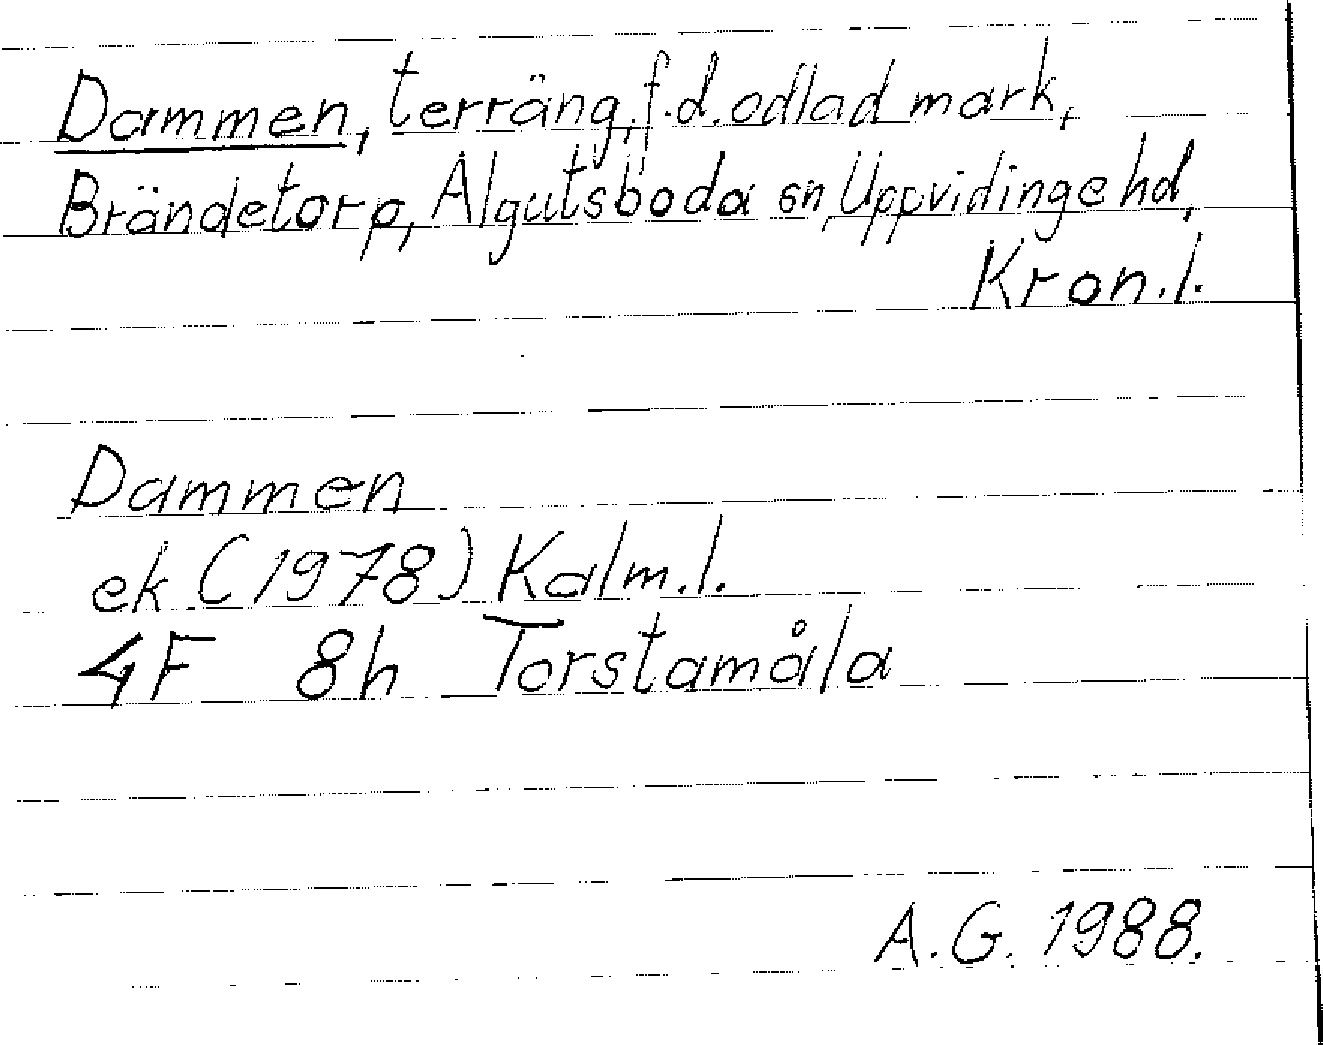 Dammen, terräng, f.d. odlad mark,
Brändetorp, Algutsboda sn, Uppvidinge hd,
Kron.l.
Dammen
ek (1978) Kalm.l.
4F 8h Torstamåla
A.G. 1988.